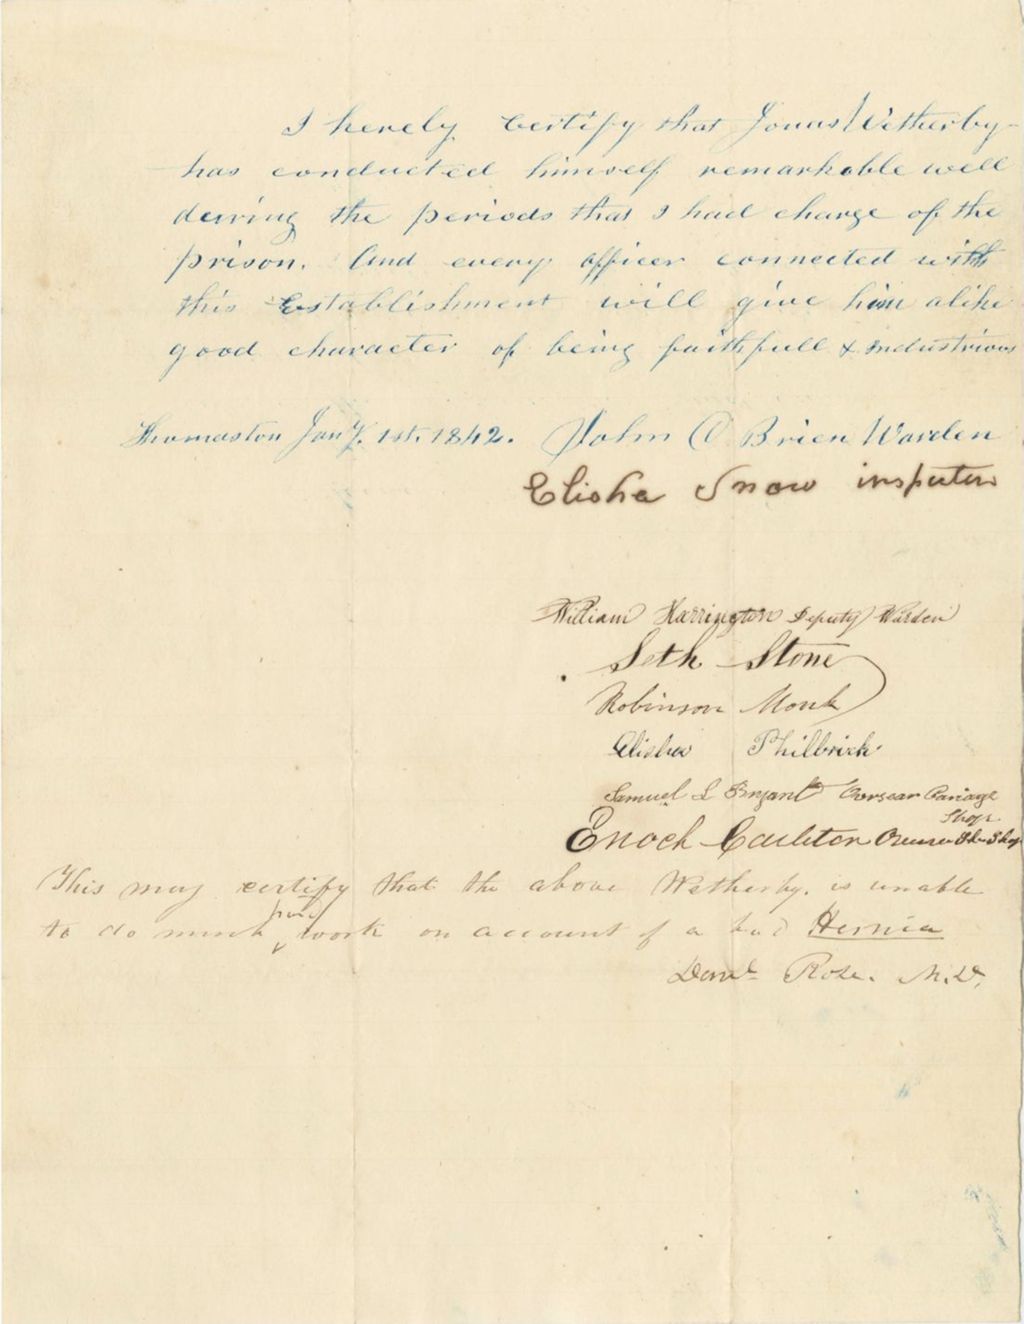 I hereby certify that Jonas Wetherby
has conducted himself remarkable well
deuring the periods that I had charge of the
prison. And every officer connected with
this Establishment will give him alike
good character of being faithfull & industrious
Thomaston Jany. 1st. 1842. John O Brien Warden
Elisha Snow inspector
William Harrington Deputy Warden
Seth Stone
Robinson Monk
Elisha Philbrick
Samuel L Bryant Oversear Cariage
Shop
Enoch Carleton Overseer Shoe Shop
This may certify that the above Wetherby. is unable
to do much work on account of a bad Hernia
Danl Rose. M.D.